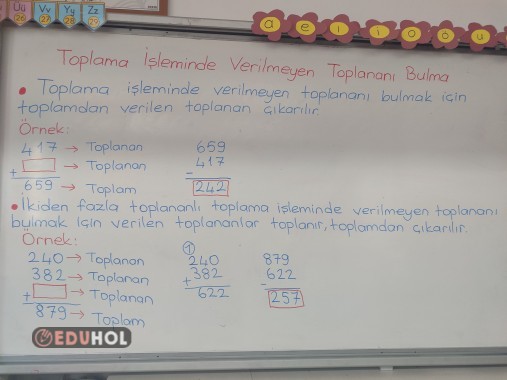 Üü Vv Yy Zz
26 27 28 29
a e ı i o ö u
Toplama İşleminde Verilmeyen Toplananı Bulma
• Toplama işleminde verilmeyen toplananı bulmak için
toplamdan verilen toplanan çıkarılır.
Örnek:
417 → Toplanan 659
+ → Toplanan - 417
659 → Toplam 242
• İkiden fazla toplananlı toplama işleminde verilmeyen toplananı
bulmak için verilen toplananlar toplanır, toplamdan çıkarılır.
Örnek: 1
240 → Toplanan 240 879
382 → Toplanan + 382 - 622
+ → Toplanan 622 257
879 → Toplam
EDUHOL